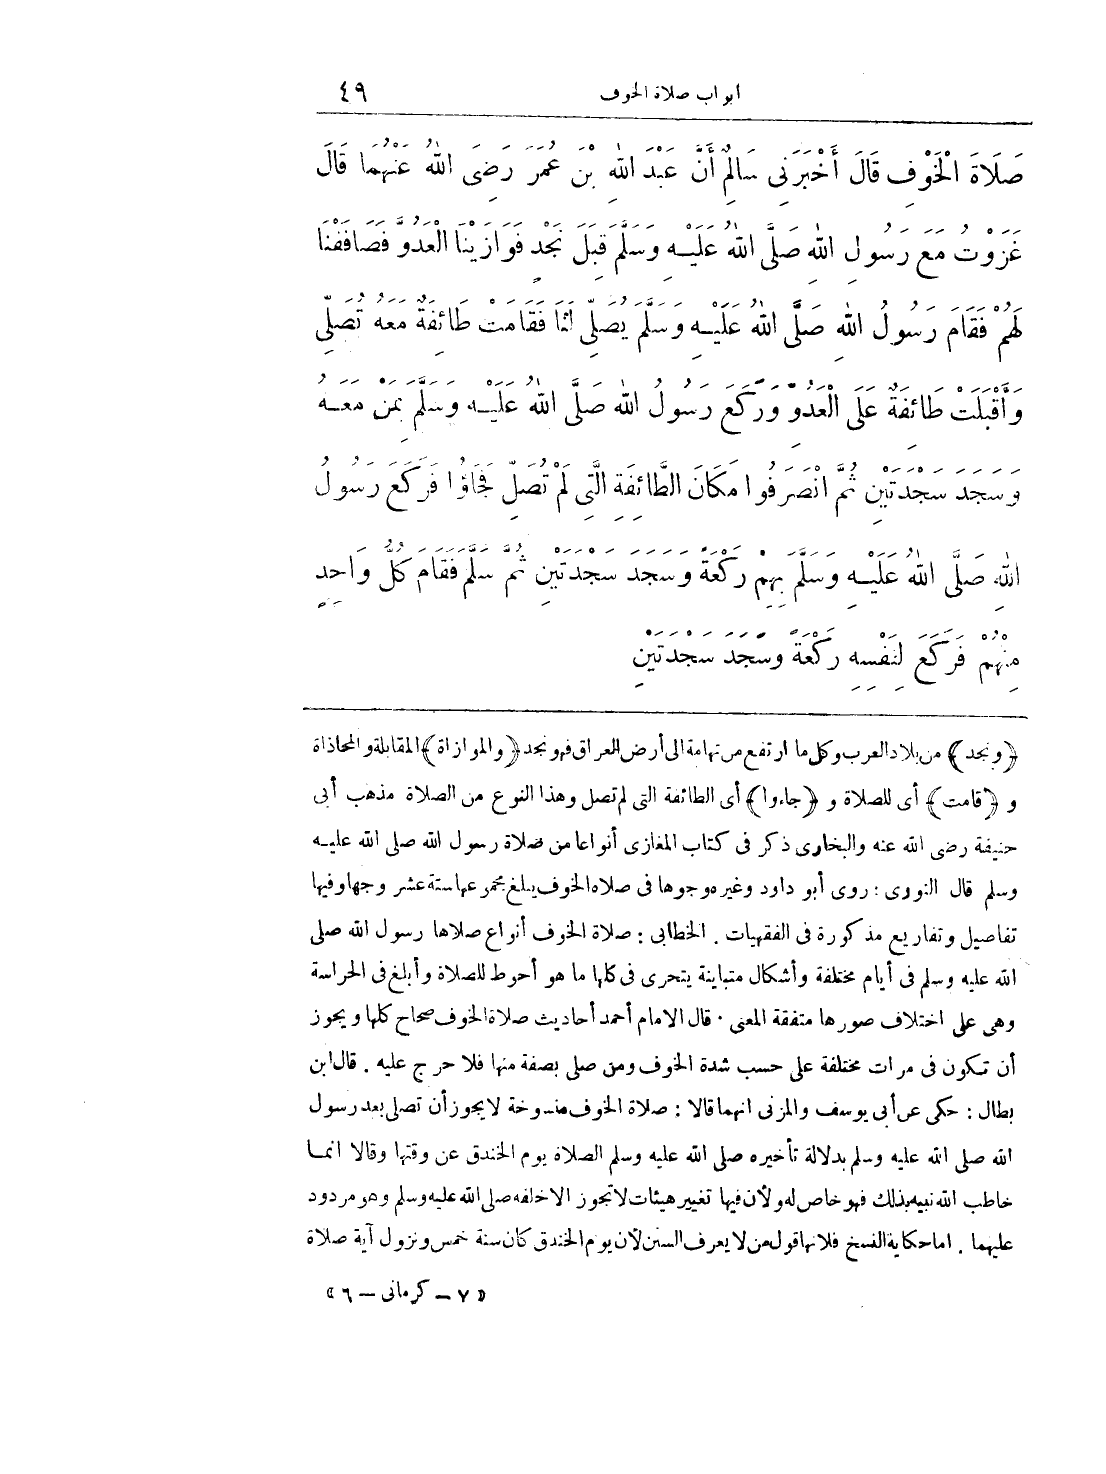 أبواب صلاة الخوف ٤٩
صَلَاةَ الْخَوْفِ قَالَ أَخْبَرَنِى سَالِمٌ أَنَّ عَبْدَ اللهِ بْنَ عُمَرَ رَضِىَ اللهُ عَنْهُمَا قَالَ
غَزَوْتُ مَعَ رَسُولِ اللهِ صَلَّى اللهُ عَلَيْهِ وَسَلَّمَ قِبَلَ نَجْدٍ فَوَازَيْنَا الْعَدُوَّ فَصَافَفْنَا
لَهُمْ فَقَامَ رَسُولُ اللهِ صَلَّى اللهُ عَلَيْهِ وَسَلَّمَ يُصَلِّى لَنَا فَقَامَتْ طَائِفَةٌ مَعَهُ تُصَلِّى
وَأَقْبَلَتْ طَائِفَةٌ عَلَى الْعَدُوِّ وَرَكَعَ رَسُولُ اللهِ صَلَّى اللهُ عَلَيْهِ وَسَلَّمَ بِمَنْ مَعَهُ
وَسَجَدَ سَجْدَتَيْنِ ثُمَّ انْصَرَفُوا مَكَانَ الطَّائِفَةِ الَّتِى لَمْ تُصَلِّ فَجَاؤُا فَرَكَعَ رَسُولُ
اللهِ صَلَّى اللهُ عَلَيْهِ وَسَلَّمَ بِهِمْ رَكْعَةً وَسَجَدَ سَجْدَتَيْنِ ثُمَّ سَلَّمَ فَقَامَ كُلُّ وَاحِدٍ
مِنْهُمْ فَرَكَعَ لِنَفْسِهِ رَكْعَةً وَسَجَدَ سَجْدَتَيْنِ
﴿ونجد﴾ من بلاد العرب وكل ما ارتفع من تهامة الى أرض العراق فهو نجد ﴿والموازاة﴾ المقابلة والمحاذاة
و ﴿قامت﴾ أى للصلاة و ﴿جاءوا﴾ أى الطائفة التى لم تصل وهذا النوع من الصلاة مذهب أبى
حنيفة رضى الله عنه والبخارى ذكر فى كتاب المغازى أنواعا من صلاة رسول الله صلى الله عليه
وسلم قال النووى : روى أبو داود وغيره وجوها فى صلاة الخوف يبلغ مجموعها ستة عشر وجها وفيها
تفاصيل وتفاريع مذكورة فى الفقهيات . الخطابى : صلاة الخوف أنواع صلاها رسول الله صلى
الله عليه وسلم فى أيام مختلفة وأشكال متباينة يتحرى فى كلها ما هو أحوط للصلاة وأبلغ فى الحراسة
وهى على اختلاف صورها متفقة المعنى . قال الامام أحمد أحاديث صلاة الخوف صحاح كلها ويجوز
أن تكون فى مرات مختلفة على حسب شدة الخوف ومن صلى بصفة منها فلا حرج عليه . قال ابن
بطال : حكى عن أبى يوسف والمزنى انهما قالا : صلاة الخوف منسوخة لا يجوز أن تصلى بعد رسول
الله صلى الله عليه وسلم بدلالة تأخيره صلى الله عليه وسلم الصلاة يوم الخندق عن وقتها وقالا انما
خاطب الله نبيه بذلك فهو خاص له ولأن فيها تغيير هيئات لا تجوز الا خلفه صلى الله عليه وسلم وهو مردود
عليهما . اما حكاية الفسخ فلانها قول من لا يعرف السنن لأن يوم الخندق كان سنة خمس ونزول آية صلاة
« ٧ – كرمانى – ٦ »